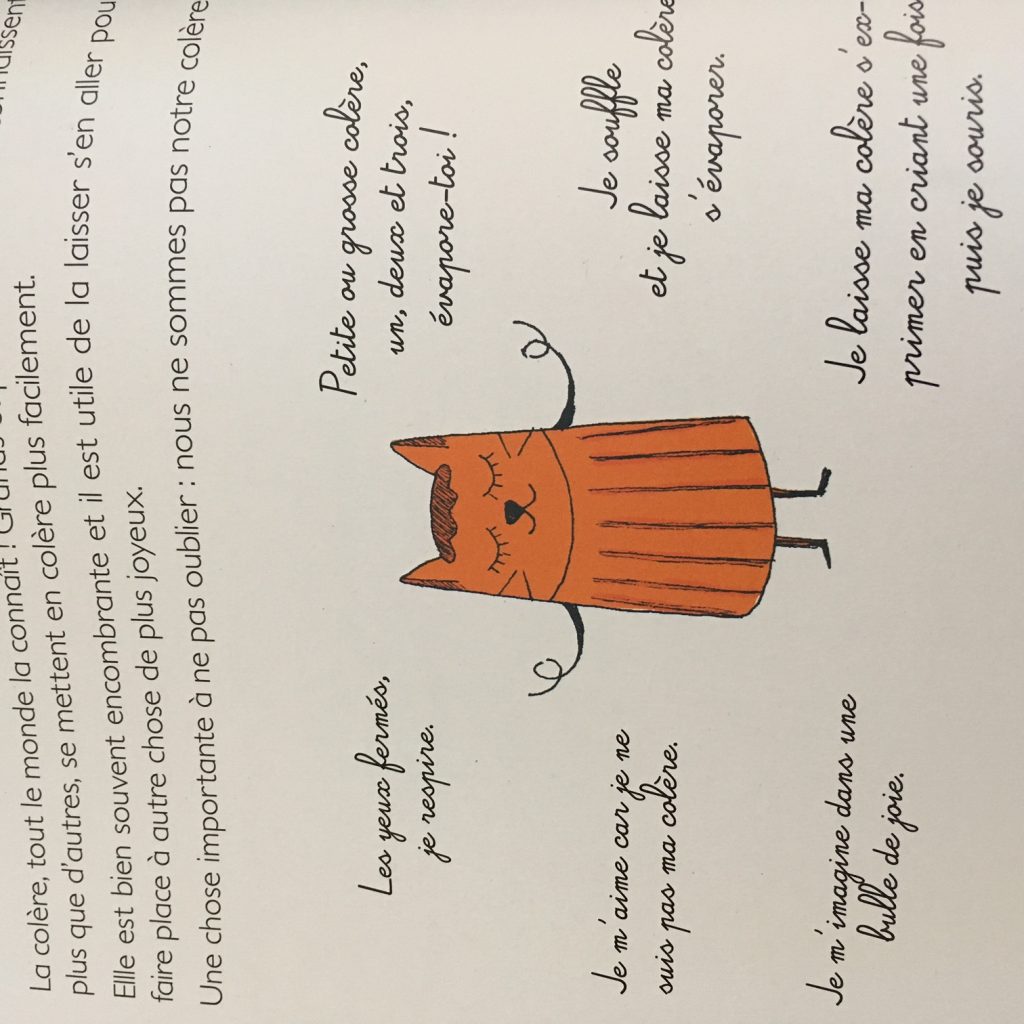 La colère, tout le monde la connaît !
plus que d'autres, se mettent en colère plus facilement.
Ellle est bien souvent encombrante et il est utile de la laisser s'en aller pou
faire place à autre chose de plus joyeux.
Une chose importante à ne pas oublier : nous ne sommes pas notre colère
Les yeux fermés,
je respire.
Petite ou grosse colère,
un, deux et trois,
évapore-toi !
Je m'aime car je ne
suis pas ma colère.
Je souffle
et je laisse ma colère
s'évaporer.
Je m'imagine dans une
bulle de joie.
Je laisse ma colère s'ex-
primer en criant une fois
puis je souris.